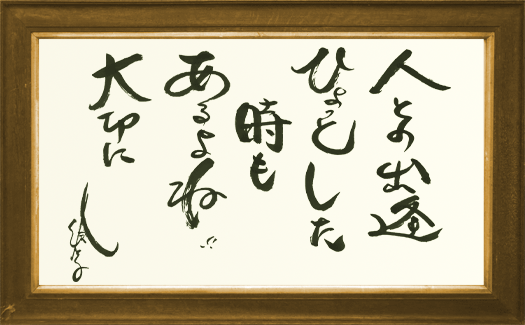 人との出逢
ひょっとした
時も
あるよね!!
大切に